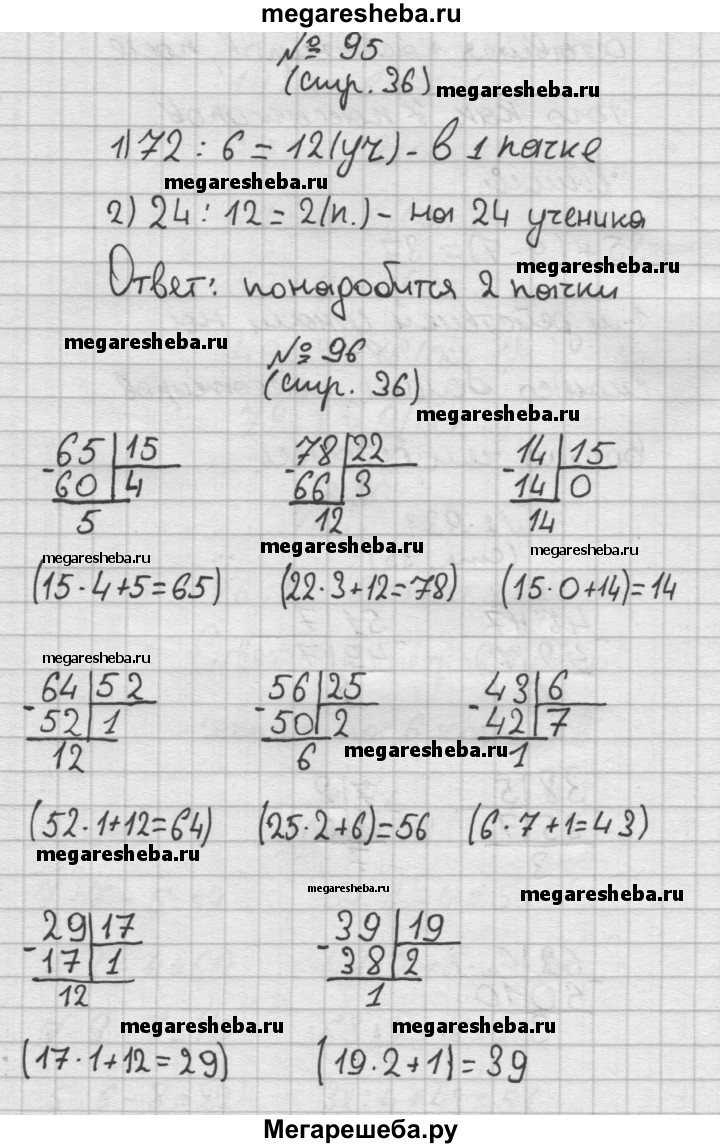 megaresheba.ru
№ 95
(стр. 36)
megaresheba.ru
1) 72 : 6 = 12 (уч) - в 1 пачке
megaresheba.ru
2) 24 : 12 = 2 (п.) - на 24 ученика
megaresheba.ru
Ответ: понадобится 2 пачки
megaresheba.ru
№ 96
(стр. 36)
megaresheba.ru
65 | 15    78 | 22    14 | 15
- 60 | 4    - 66 | 3    - 14 | 0
5    12    14
megaresheba.ru megaresheba.ru megaresheba.ru
(15 · 4 + 5 = 65)    (22 · 3 + 12 = 78)    (15 · 0 + 14) = 14
megaresheba.ru
64 | 52    56 | 25    43 | 6
- 52 | 1    - 50 | 2    - 42 | 7
12    6    1
megaresheba.ru
(52 · 1 + 12 = 64)    (25 · 2 + 6) = 56    (6 · 7 + 1 = 43)
megaresheba.ru
megaresheba.ru megaresheba.ru
29 | 17    39 | 19
- 17 | 1    - 38 | 2
12    1
megaresheba.ru megaresheba.ru
(17 · 1 + 12 = 29)    (19 · 2 + 1) = 39
Мегарешеба.ру